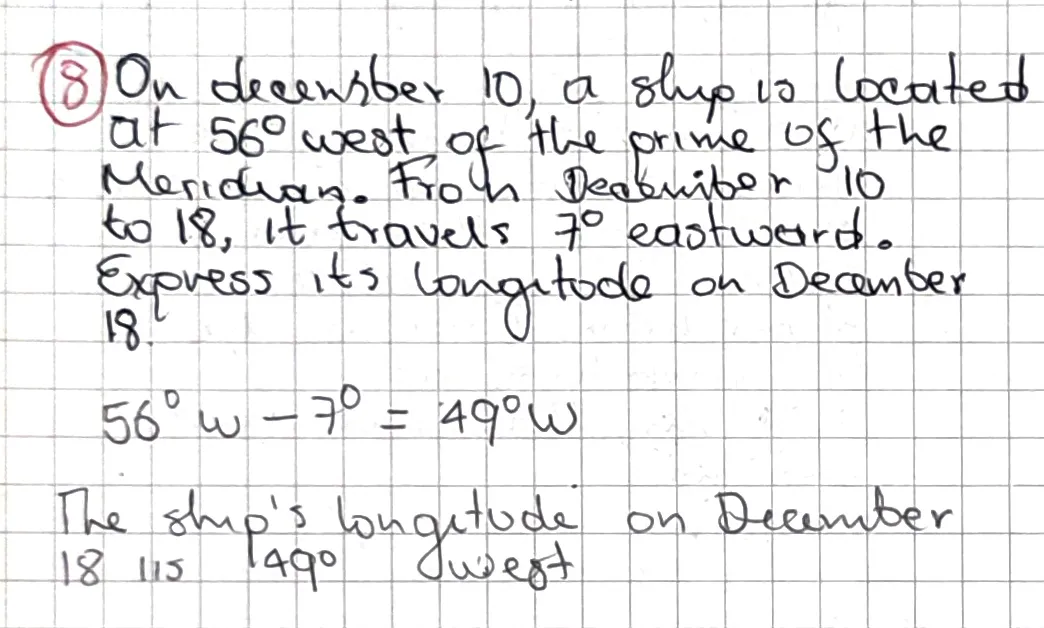 ⑧ On decensber 10, a ship is located
at 56° west of the prime of the
Meridian. From Decbmiber 10
to 18, it travels 7° eastward.
Express its longitude on December
18.
56° W - 7° = 49° W
The ship's longitude on December
18 is 49° west